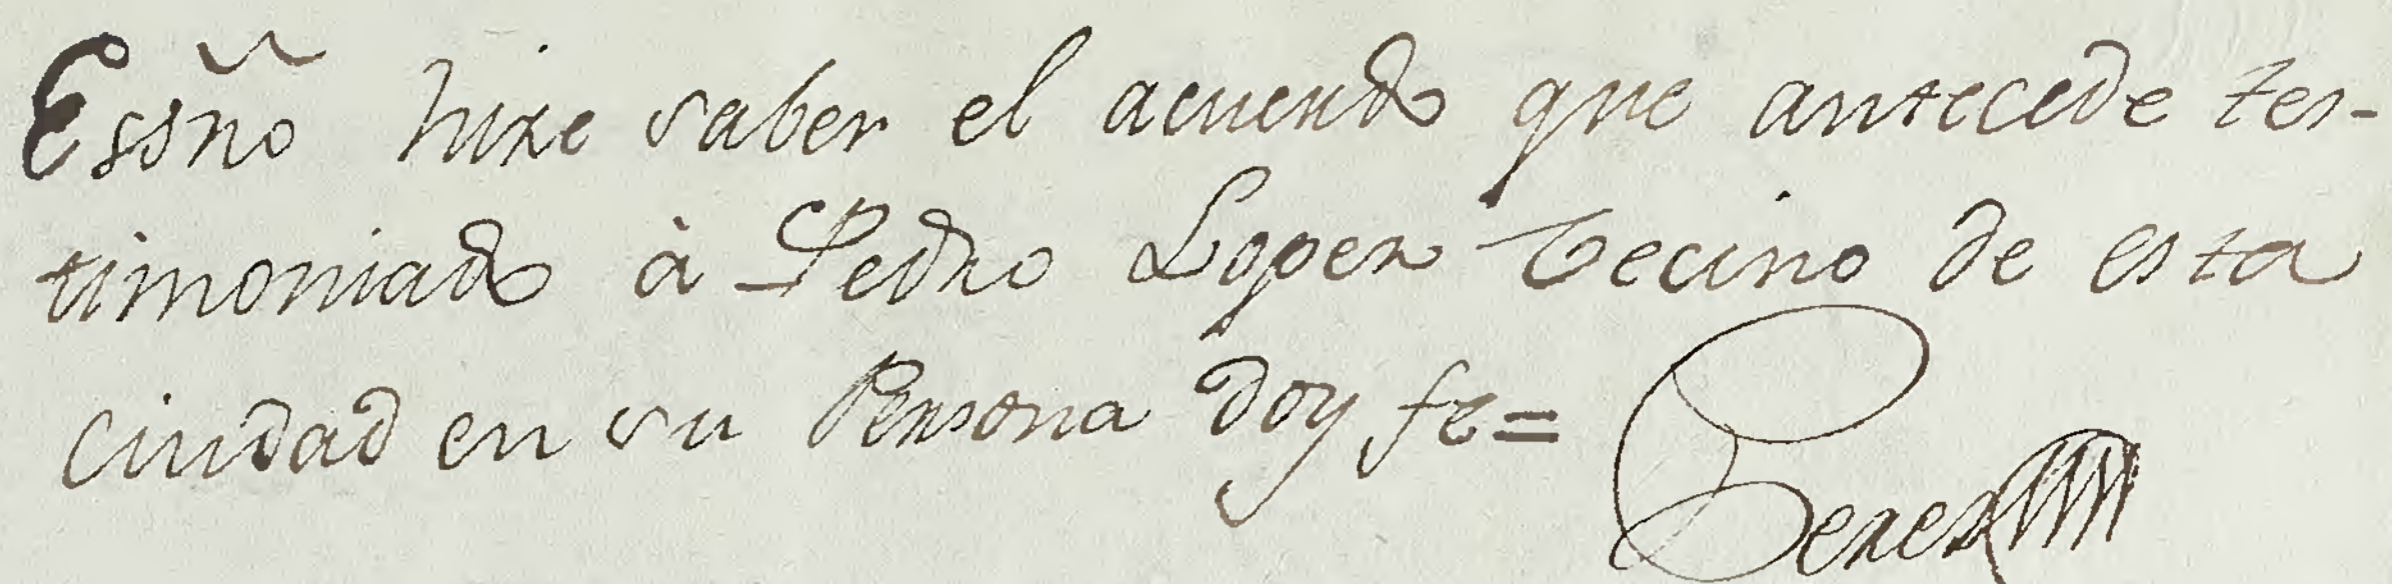 Essño hize saber el acuerdo que antecede tes-
timoniado à Pedro Lopez Vecino de esta
ciudad en su Persona doy fe=
Perez